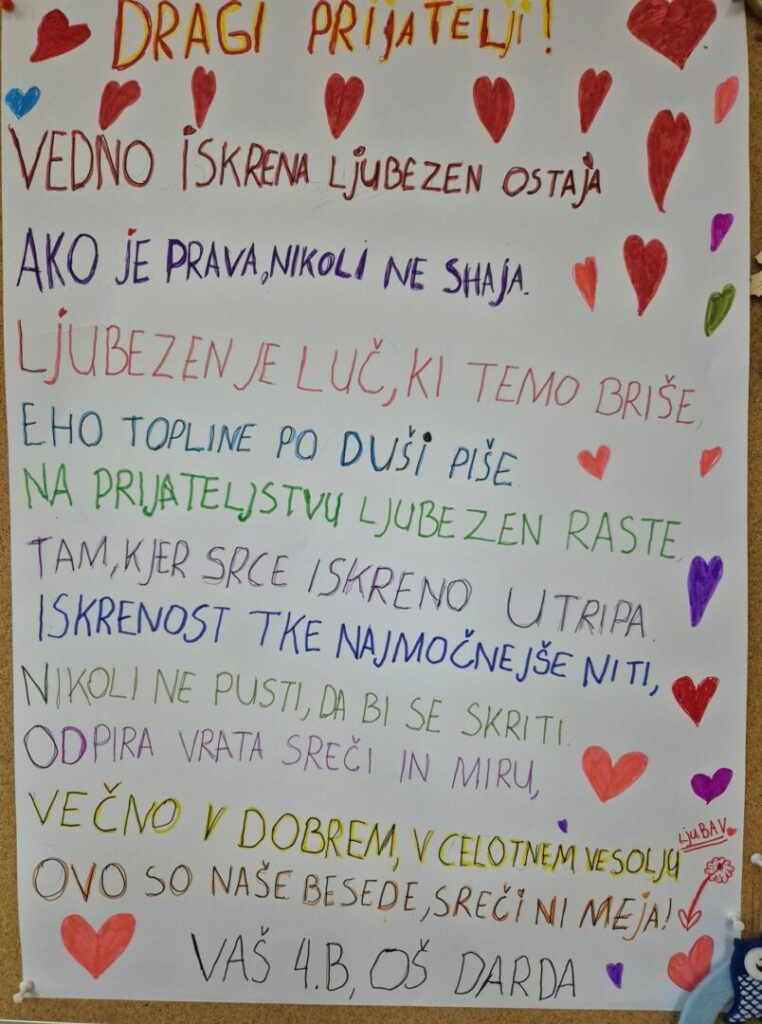 DRAGI PRIJATELJI!
VEDNO ISKRENA LJUBEZEN OSTAJA
AKO JE PRAVA, NIKOLI NE SHAJA.
LJUBEZEN JE LUČ, KI TEMO BRIŠE,
EHO TOPLINE PO DUŠI PIŠE.
NA PRIJATELJSTVU LJUBEZEN RASTE,
TAM, KJER SRCE ISKRENO UTRIPA.
ISKRENOST TKE NAJMOČNEJŠE NITI,
NIKOLI NE PUSTI, DA BI SE SKRITI.
ODPIRA VRATA SREČI IN MIRU,
VEČNO V DOBREM, V CELOTNEM VESOLJU
LJUBAV
OVO SO NAŠE BESEDE, SREČI NI MEJA!
VAŠ 4.B, OŠ DARDA